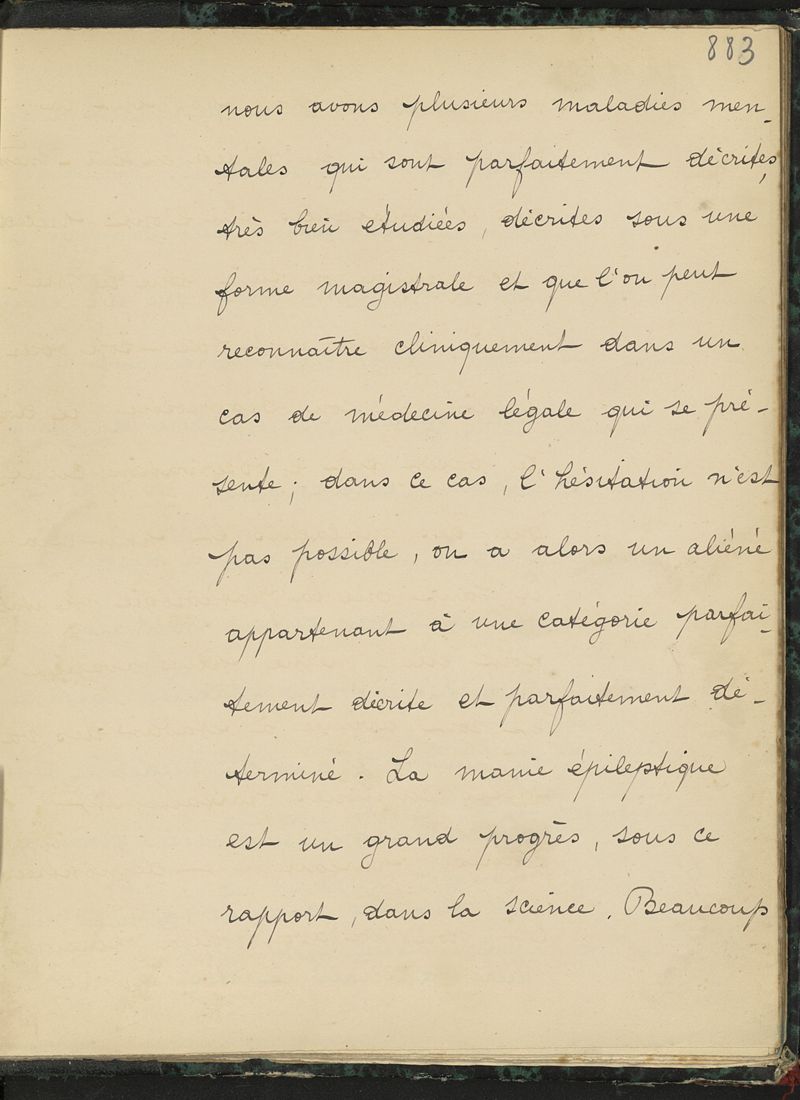 883
nous avons plusieurs maladies men-
tales qui sont parfaitement décrites,
très bien étudiées, décrites sous une
forme magistrale et que l'on peut
reconnaître cliniquement dans un
cas de médecine légale qui se pré-
sente ; dans ce cas, l'hésitation n'est
pas possible, on a alors un aliéné
appartenant à une catégorie parfai-
tement décrite et parfaitement dé-
terminé. La manie épileptique
est un grand progrès, sous ce
rapport, dans la science. Beaucoup